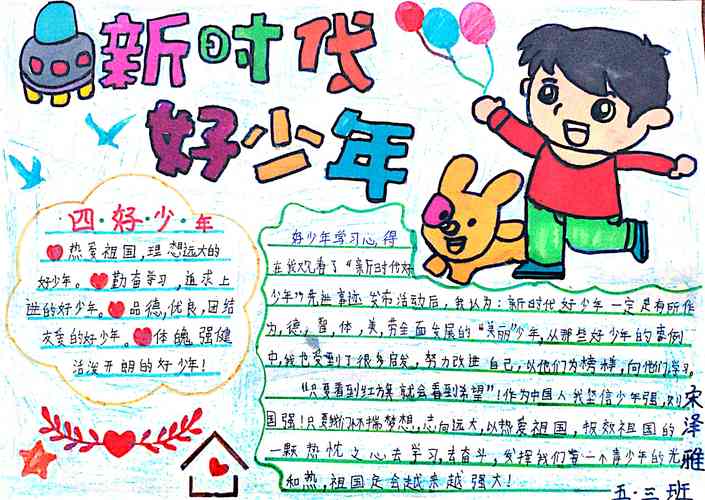 新时代
好少年
四·好·少·年
热爱祖国，理想远大的
好少年。勤奋学习，追求上
进的好少年。品德，优良，团结
友爱的好少年。体魄强健
活泼开朗的好少年！
好少年学习心得
在我观看了“新时代好
少年”先进事迹发布活动后，我认为：新时代好少年一定是有所作
为，德，智，体，美，劳全面发展的“美丽”少年，从那些好少年的事例
中，我也受到了很多启发，努力改进自己，以他们为榜样，向他们学习。
“只要看到红方案就会看到希望”！作为中国人，我坚信少年强，则
国强！只要我们怀揣梦想，志向远大，以热爱祖国，报效祖国的
一颗热忱之心去学习，去奋斗，发挥我们每一个青少年的光
和热，祖国定会越来越强大！
宋泽雅
五·三班